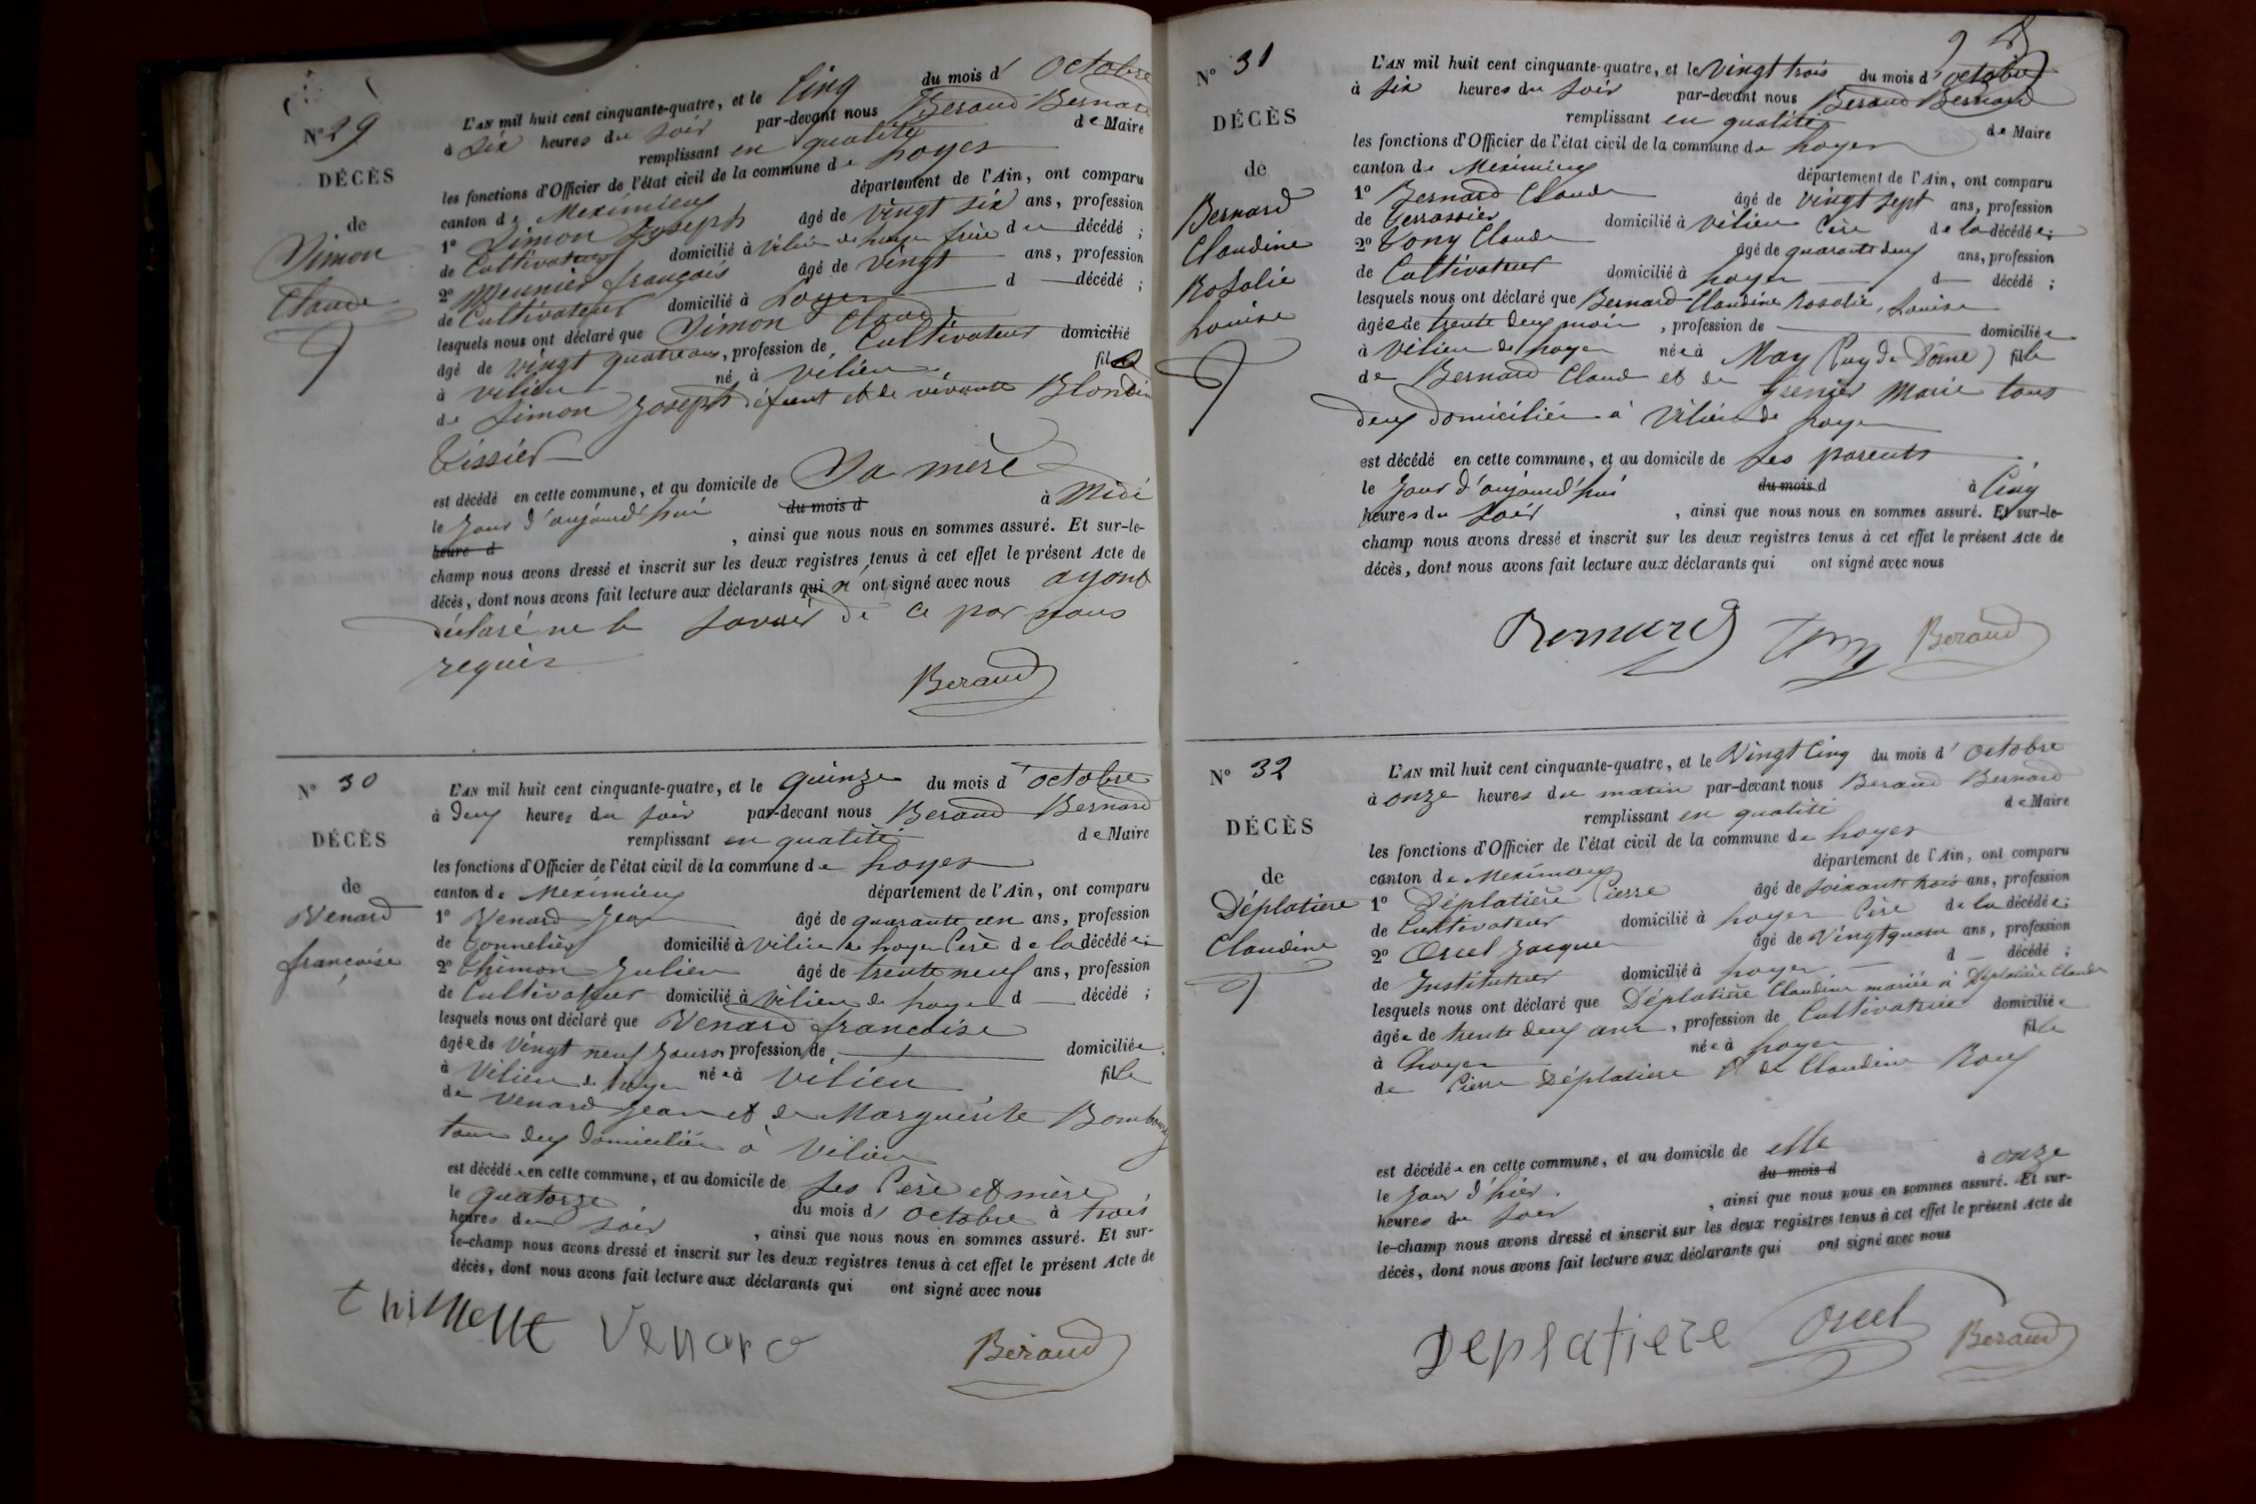 N° 29
DÉCÈS
de
Simon
Claude
L'AN mil huit cent cinquante-quatre, et le Cinq du mois d' Octobre
à Six heures du soir par-devant nous Beraud Bernard
remplissant en qualité de Maire
les fonctions d'Officier de l'état civil de la commune de Loyes
canton de Meximieux département de l'Ain, ont comparu
1° Simon Joseph âgé de vingt six ans, profession
de Cultivateur domicilié à Vilieu de Loyes frère du décédé ;
2° Meunier françois âgé de vingt ans, profession
de Cultivateur domicilié à Loyes d décédé ;
lesquels nous ont déclaré que Simon Claude
âgé de vingt quatre ans, profession de Cultivateur domicilié
à Vilieu né à Vilieu fils
de Simon Joseph défunt et de vivante Blondine
Tissier
est décédé en cette commune, et au domicile de Sa mère
le Jour d'aujourd'hui du mois d à Midi
heure d , ainsi que nous nous en sommes assuré. Et sur-le-
champ nous avons dressé et inscrit sur les deux registres tenus à cet effet le présent Acte de
décès, dont nous avons fait lecture aux déclarants qui n' ont signé avec nous ayant
déclaré ne le savoir de ce par nous
requis
Beraud
N° 30
DÉCÈS
de
Venard
françoise
L'AN mil huit cent cinquante-quatre, et le quinze du mois d' octobre
à deux heures du soir par-devant nous Beraud Bernard
remplissant en qualité de Maire
les fonctions d'Officier de l'état civil de la commune de Loyes
canton de Meximieux département de l'Ain, ont comparu
1° Venard Jean âgé de quarante un ans, profession
de Tonnelier domicilié à Vilieu de Loyes Père de la décédée ;
2° Thimon Julien âgé de trente neuf ans, profession
de Cultivateur domicilié à Vilieu de Loyes d décédé ;
lesquels nous ont déclaré que Venard françoise
âgée de Vingt neuf Jours profession de domiciliée
à Vilieu de Loyes née à Vilieu fille
de Venard Jean et de Marguerite
tous deux domiciliés à Vilieu
est décédée en cette commune, et au domicile de ses Père et mère
le quatorze du mois d' octobre à trois
heures du soir , ainsi que nous nous en sommes assuré. Et sur-
le-champ nous avons dressé et inscrit sur les deux registres tenus à cet effet le présent Acte de
décès, dont nous avons fait lecture aux déclarants qui ont signé avec nous
Venard Béraud
N° 31
DÉCÈS
de
Bernard
Claudine
Rosalie
Louise
L'AN mil huit cent cinquante-quatre, et le vingt trois du mois d' octobre
à six heures du soir par-devant nous Beraud Bernard
remplissant en qualité de Maire
les fonctions d'Officier de l'état civil de la commune de Loyes
canton de Meximieux département de l'Ain, ont comparu
1° Bernard Claude âgé de vingt sept ans, profession
de Terrassier domicilié à Vilieu Père de la décédée ;
2° Tony Claude âgé de quarante deux ans, profession
de Cultivateur domicilié à Loyes d décédé ;
lesquels nous ont déclaré que Bernard Claudine Rosalie, Louise
âgée de trente deux mois , profession de domiciliée
à Vilieu de Loyes née à May (Puy de Dôme) fille
de Bernard Claude et de Grenier Marie tous
deux domiciliés à Vilieu de Loyes
est décédé en cette commune, et au domicile de ses parents
le Jour d'aujourd'hui du mois d à Cinq
heures du soir , ainsi que nous nous en sommes assuré. Et sur-le-
champ nous avons dressé et inscrit sur les deux registres tenus à cet effet le présent Acte de
décès, dont nous avons fait lecture aux déclarants qui ont signé avec nous
Bernard Tony Beraud
N° 32
DÉCÈS
de
Déplatière
Claudine
L'AN mil huit cent cinquante-quatre, et le Vingt Cinq du mois d' octobre
à onze heures du matin par-devant nous Beraud Bernard
remplissant en qualité de Maire
les fonctions d'Officier de l'état civil de la commune de Loyes
canton de Meximieux département de l'Ain, ont comparu
1° Déplatière Pierre âgé de soixante trois ans, profession
de Cultivateur domicilié à Loyes Père de la décédée ;
2° Orsel Jacques âgé de Vingt quatre ans, profession
de Instituteur domicilié à Loyes d décédé ;
lesquels nous ont déclaré que Déplatière Claudine mariée à Déplatière Claude
âgée de trente deux ans, profession de Cultivatrice domiciliée
à Loyes née à Loyes fille
de Pierre Déplatière & de Claudine Roux
est décédée en cette commune, et au domicile de elle
le Jour d'hier du mois d à onze
heures du soir , ainsi que nous nous en sommes assuré. Et sur-
le-champ nous avons dressé et inscrit sur les deux registres tenus à cet effet le présent Acte de
décès, dont nous avons fait lecture aux déclarants qui ont signé avec nous
Deplatiere Orsel Beraud